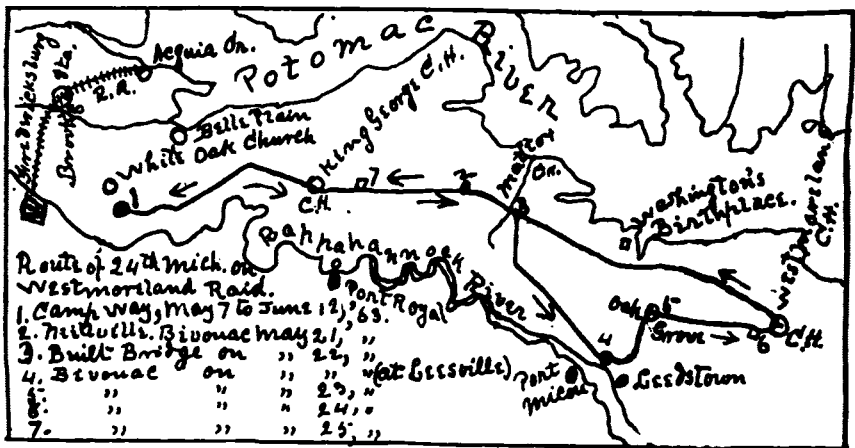 Acquia Cr.
R.R.
Brooks Sta.
Fredricksburg
POTOMAC RIVER
Belle Plain
White Oak Church
King George C.H.
C.H.
1
7
2
3
Mattox Cr.
Washington's Birthplace.
Westmoreland C.H.
C.H.
Rappahannock River
Port Royal
Oak Grove
5
6
4
Leedstown
Port Micou
Route of 24th Mich. on
Westmoreland Raid.
1. Camp Way, May 7 to June 12, '63.
2. Millville. Bivouac May 21, "
3. Built Bridge on " 22, "
4. Bivouac on " " " (at Leesville)
5. " " " 23, "
6. " " " 24, "
7. " " " 25, "